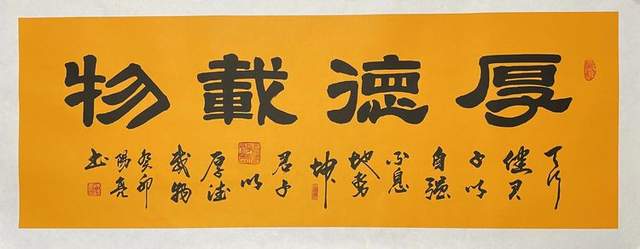 厚德載物
天行
健君
子以
自強
不息
地勢
坤
君子
以
厚德
載物
癸卯
书